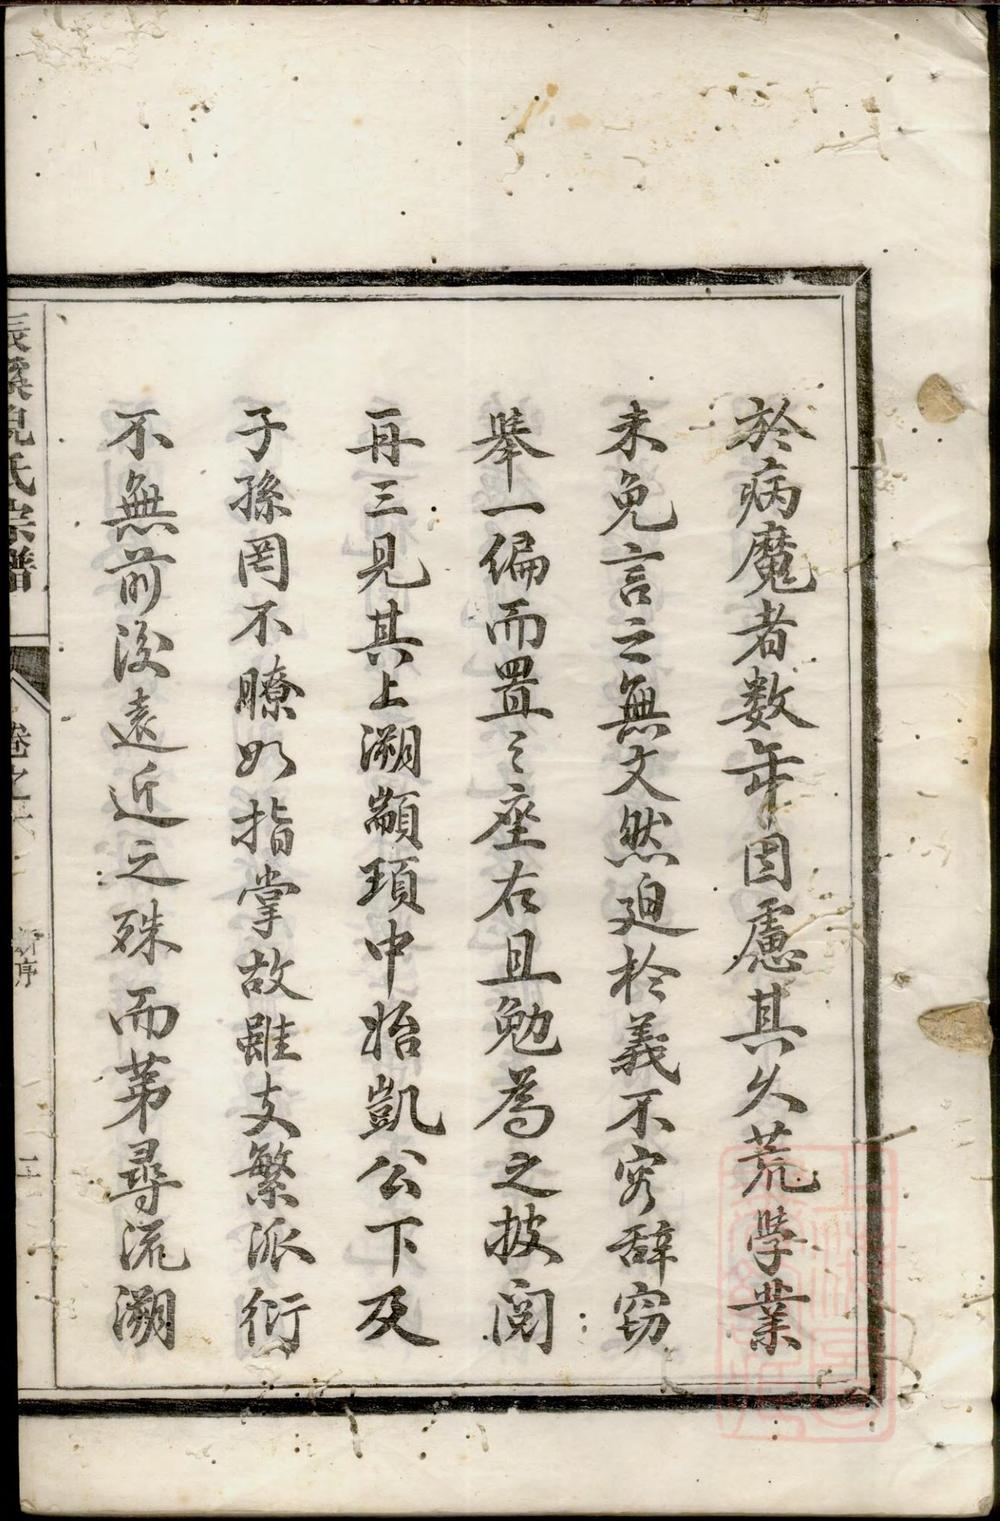 於病魔者数年因慮其久荒學業
未免言之無文然迫於義不容辭窃
舉一偏而置之座右且勉為之披閱
再三見其上溯顓頊中怡凱公下及
子孫罔不瞭如指掌故雖支繁派衍
不無前後遠近之殊而苐尋流溯
氏宗譜
卷之
序